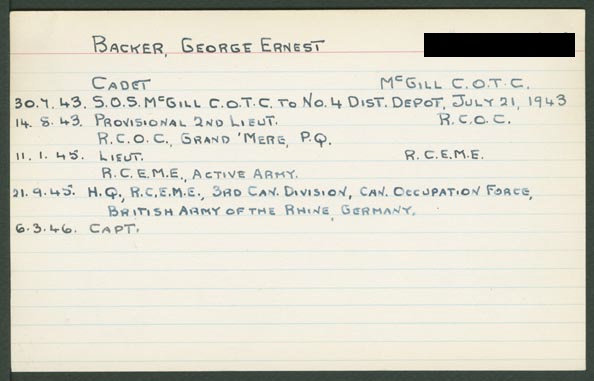 BACKER, GEORGE ERNEST
CADET McGILL C.O.T.C.
30.7.43. S.O.S. McGILL C.O.T.C. TO NO.4 DIST. DEPOT, JULY 21, 1943
14.8.43. PROVISIONAL 2ND LIEUT. R.C.O.C.
R.C.O.C., GRAND 'MERE, P.Q.
11.1.45. LIEUT. R.C.E.M.E.
R.C.E.M.E., ACTIVE ARMY.
21.9.45. H.Q., R.C.E.M.E., 3RD CAN. DIVISION, CAN. OCCUPATION FORCE,
BRITISH ARMY OF THE RHINE, GERMANY.
6.3.46. CAPT.